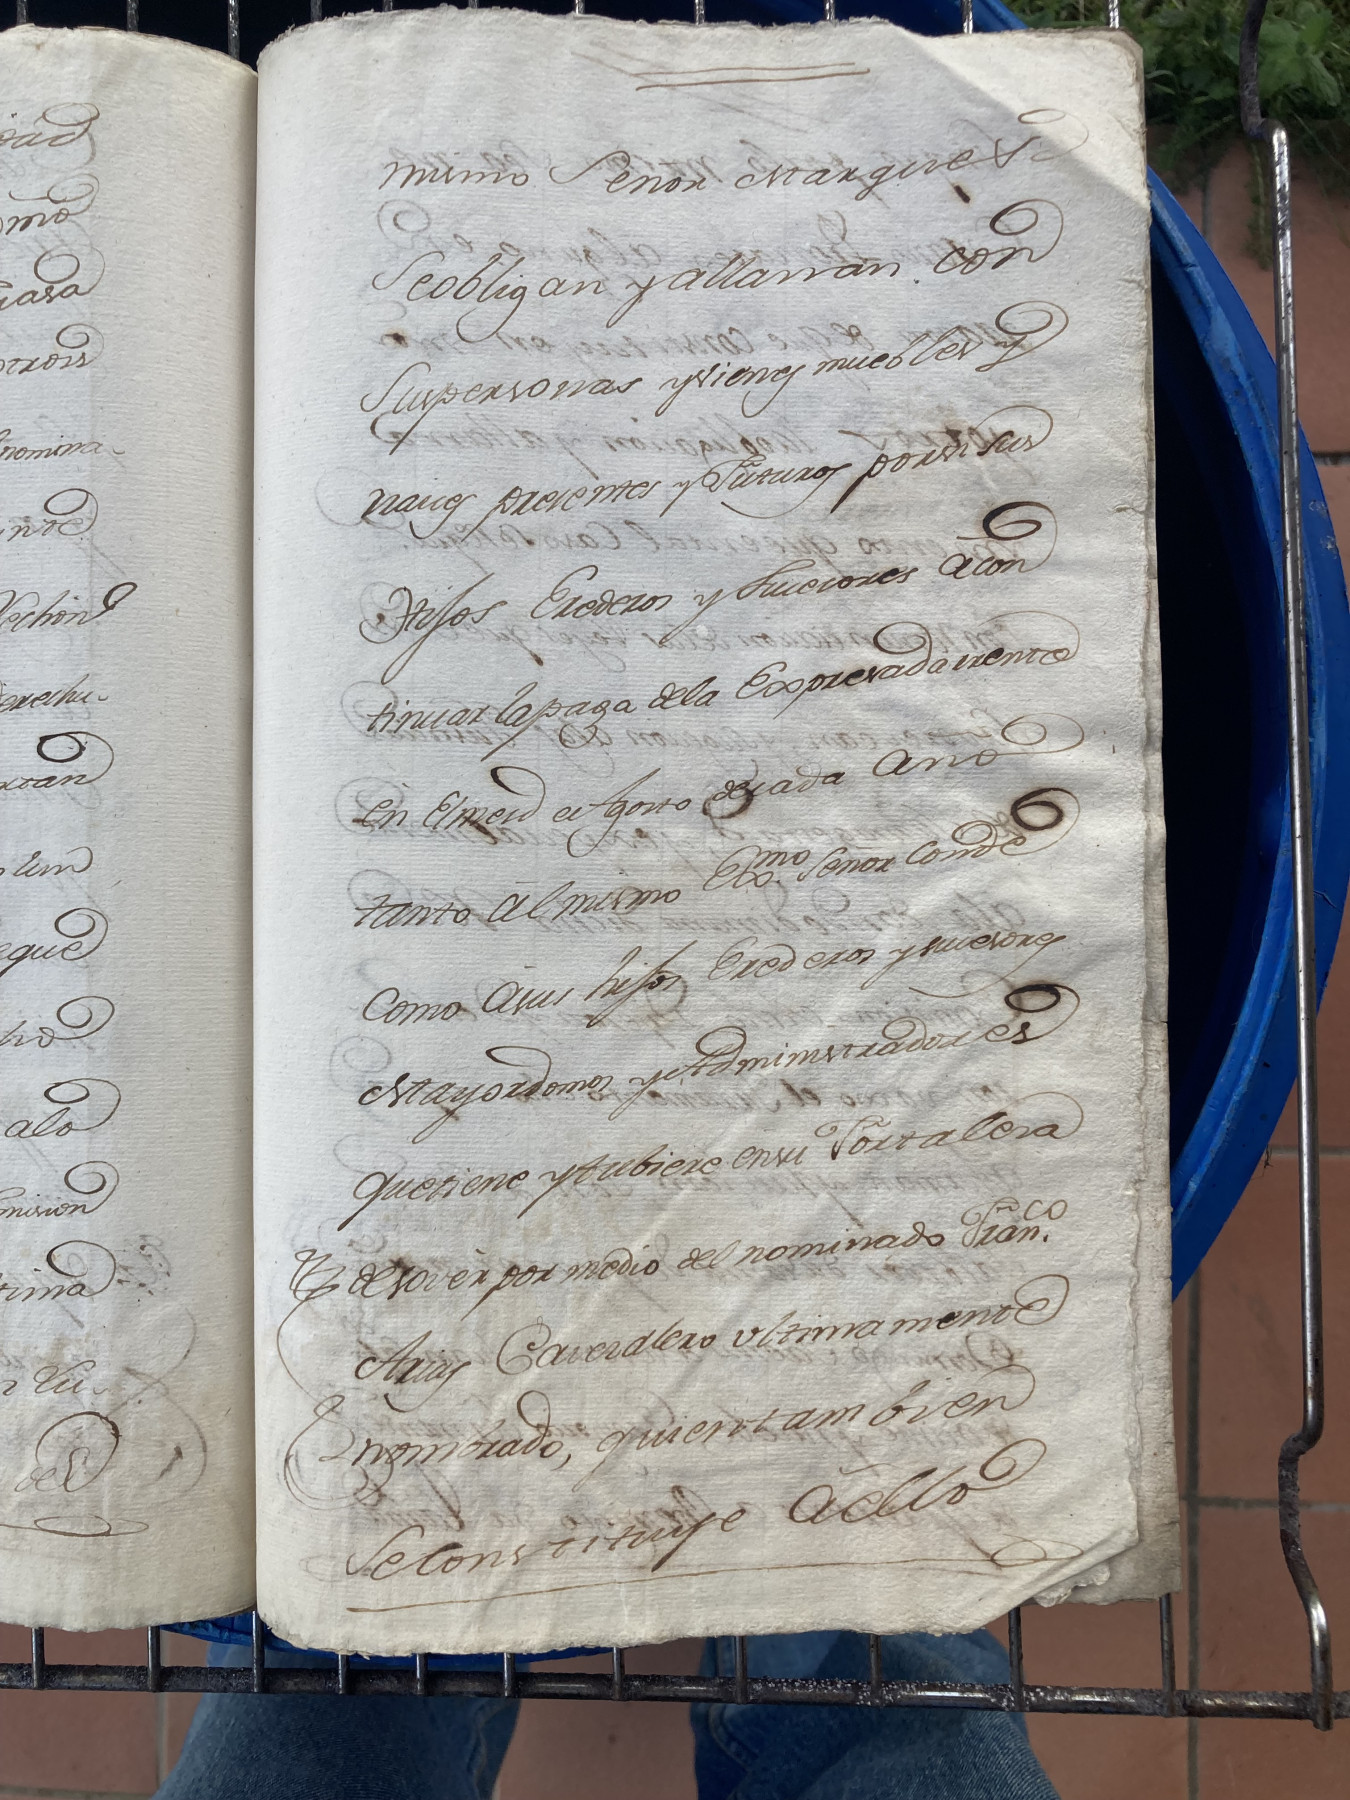 oad
omo
Casa
otrois
nomina-
nte
echon
derechu-
xtan
Un
eque
alo
mision
tima
del
mismo Señor Marques:
Seobligan yallanan con
Suspersonas yvienes muebles y
raizes presentes y futuros porsi sus
Hijos Erederos y Sucesores acon
tinuar lapaga dela Expresada rente
en Elmes de Agosto decada año
tanto al mismo Exmo. Señor Conde
Como asus hijos Erederos ysucesores
Mayordomos y Administradores
quetiene ytubiere ensu Fortalera
desovèr por medio del nominado Fran.co
Arias Cavesalero ultimamente
nombrado, quien tambien
Seconstituye aello